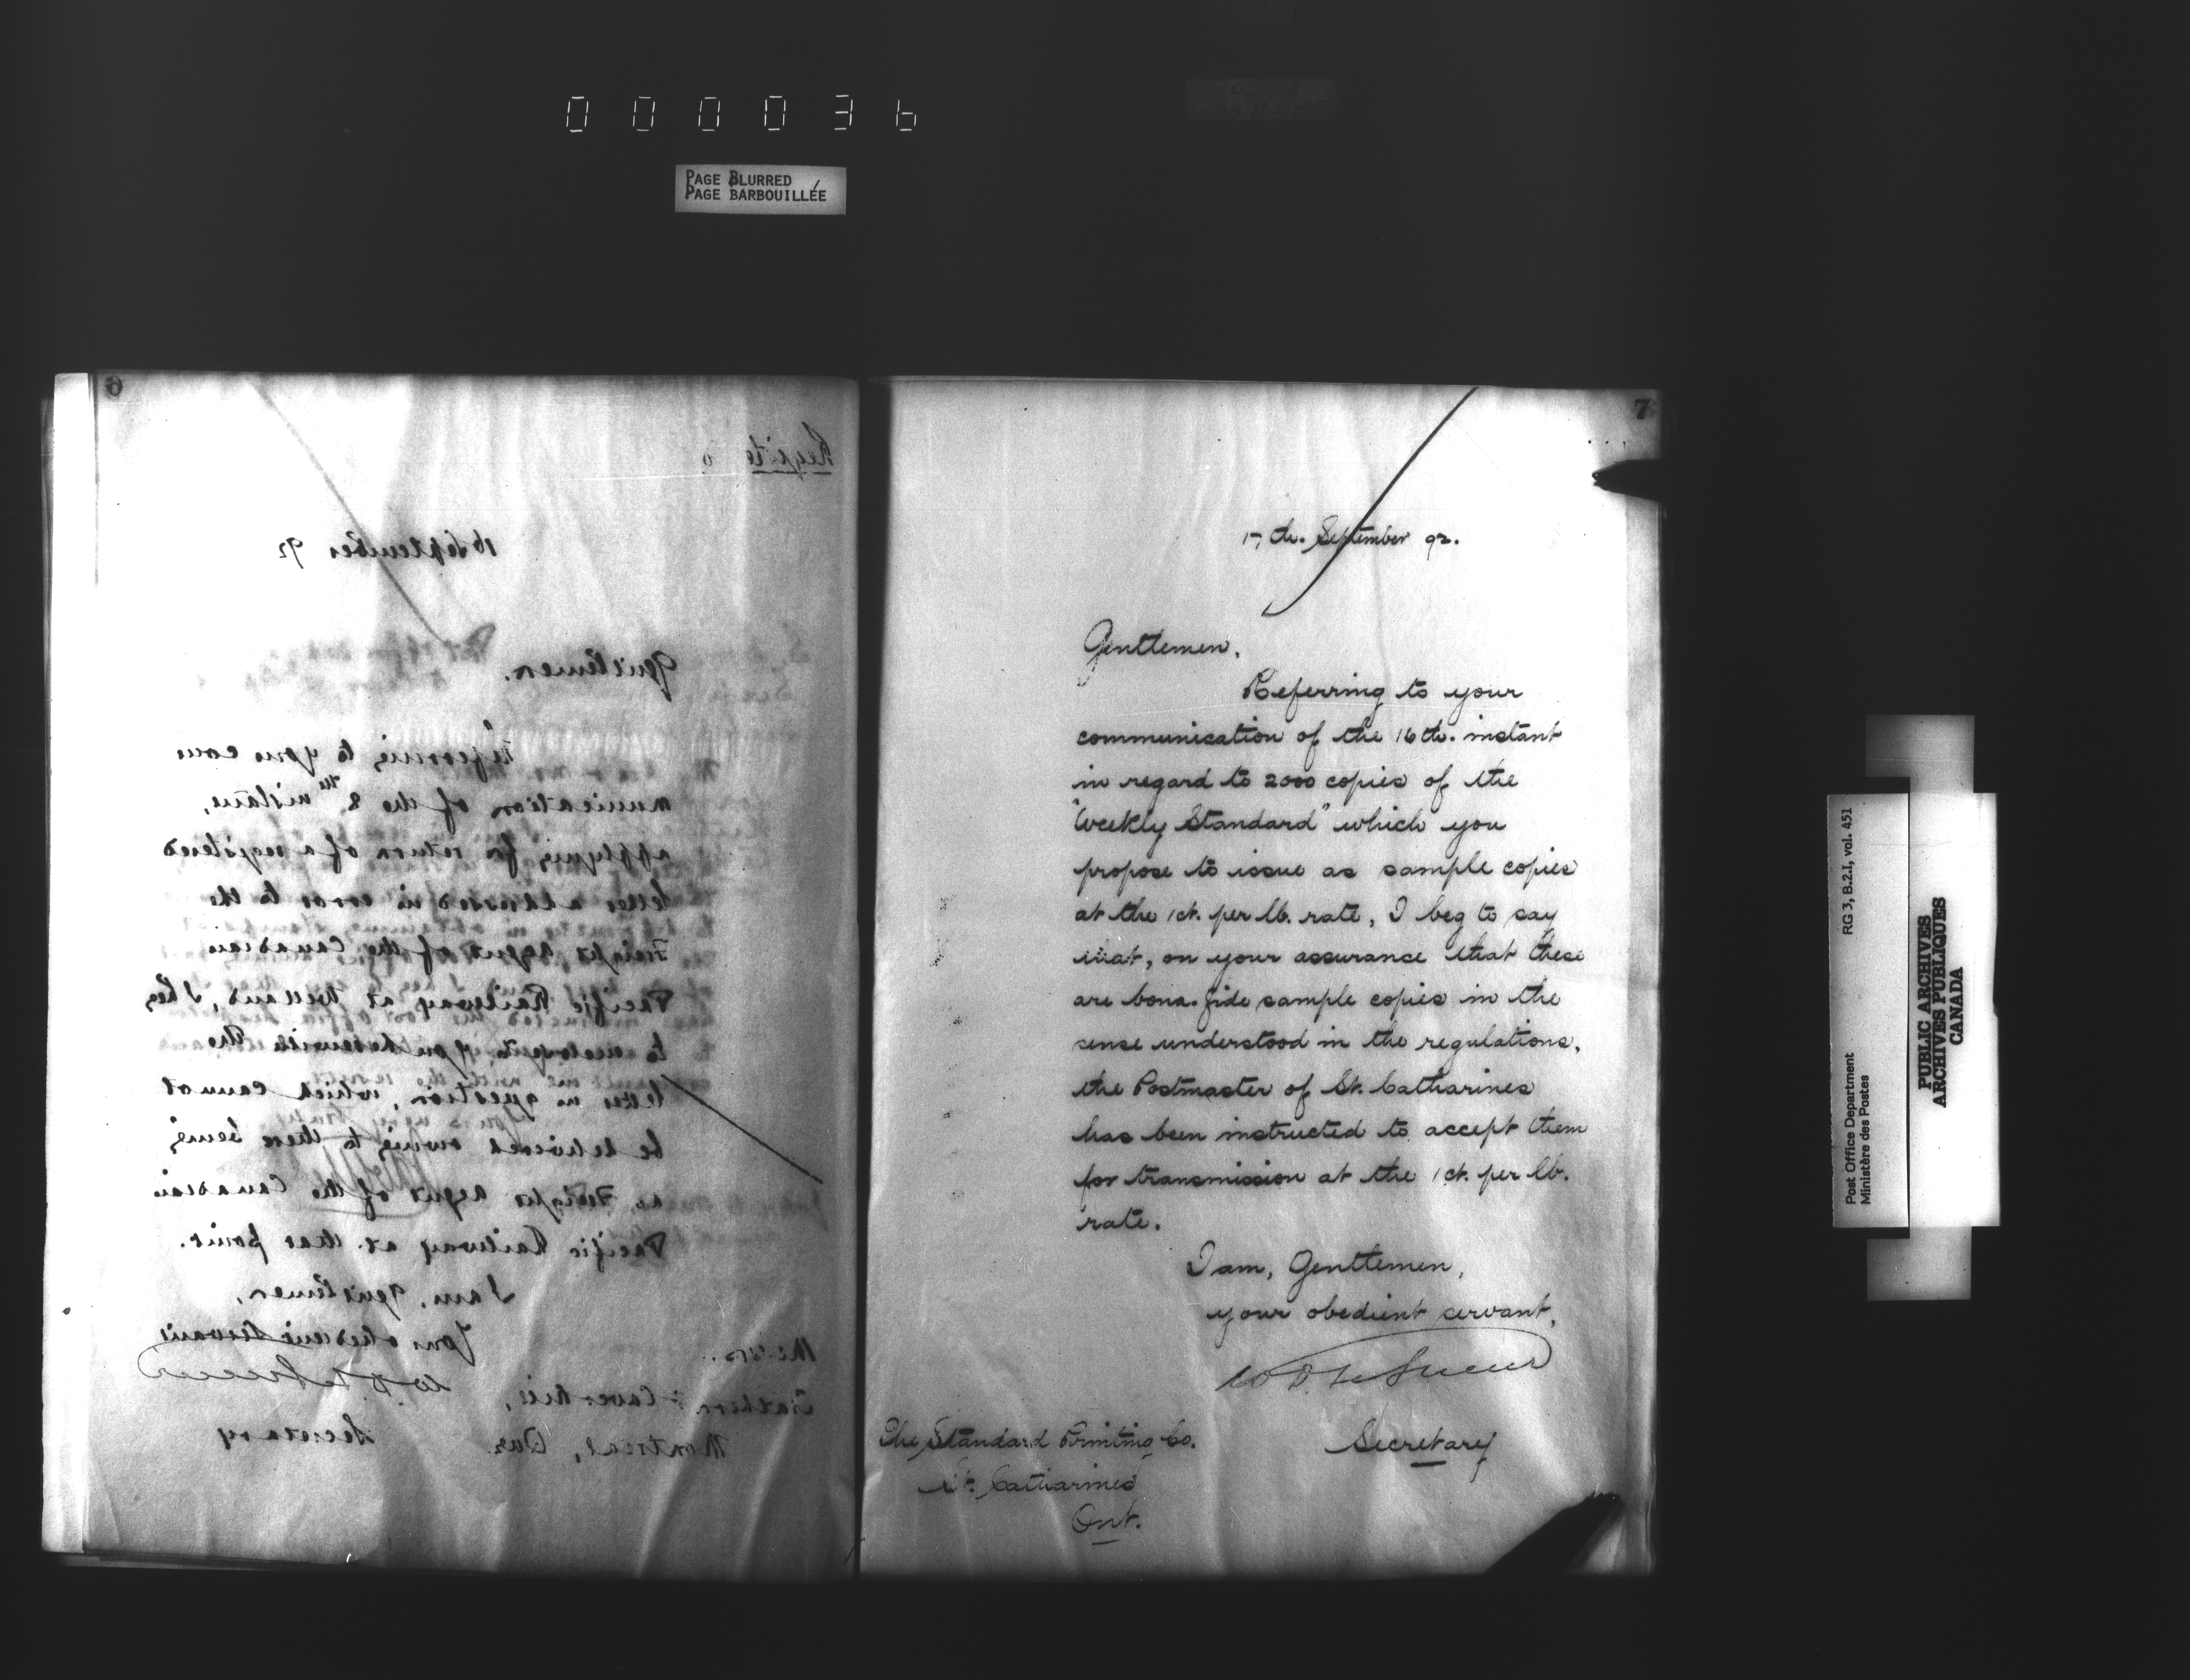 000036
PAGE BLURRED
PAGE BARBOUILLÉE
6
Reg'd to
16 September 92
Gentlemen.
Referring to your com
munication of the 8th instant,
applying for return of a registered
letter addressed in error to the
Freight Agent of the Canadian
Pacific Railway at Welland, I beg
to enclose to you herewith the
letter in question, which cannot
be delivered owing to there being
no Freight Agent of the Canadian
Pacific Railway at that point.
I am, Gentlemen,
Your obedient Servant
W D LeSueur
Secretary
Messrs.
& Caverhill,
Montreal, Que.
7
17th. September 92.
Gentlemen,
Referring to your
communication of the 16th. instant
in regard to 2000 copies of the
"Weekly Standard" which you
propose to issue as sample copies
at the 1ct. per lb. rate, I beg to say
that, on your assurance that these
are bona-fide sample copies in the
sense understood in the regulations,
the Postmaster of St. Catharines
has been instructed to accept them
for transmission at the 1ct. per lb.
rate.
I am, Gentlemen,
your obedient servant,
W D LeSueur
Secretary
The Standard Printing Co.
St. Catharines
Ont.
Post Office Department
Ministère des Postes
RG 3, B.2.I, vol. 451
PUBLIC ARCHIVES
ARCHIVES PUBLIQUES
CANADA